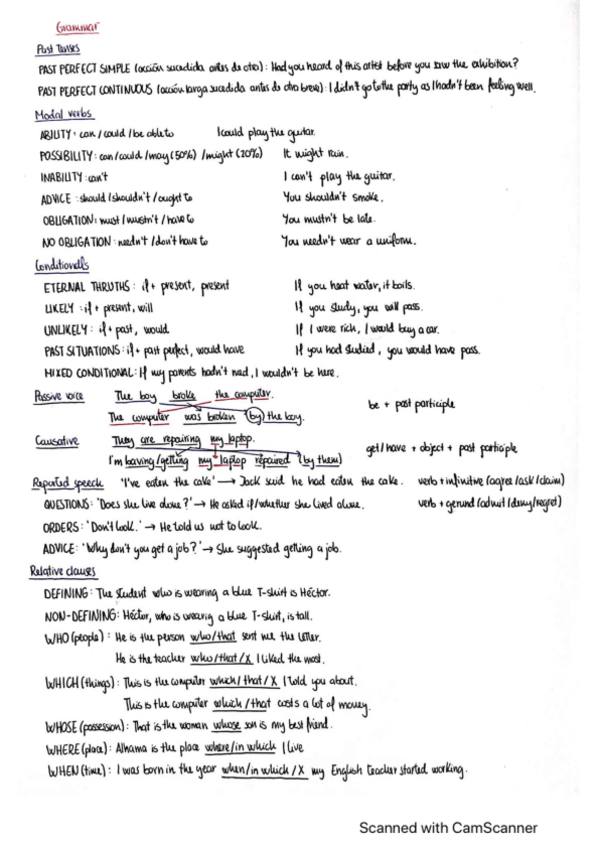 Grammar
Past Tenses
PAST PERFECT SIMPLE (acción sucedida antes de otra): Had you heard of this artist before you saw the exhibition?
PAST PERFECT CONTINUOUS (acción larga sucedida antes de otra breve): I didn't go to the party as I hadn't been feeling well.
Modal verbs
ABILITY: can/could/be able to I could play the guitar.
POSSIBILITY: can/could/may (50%) /might (20%) It might rain.
INABILITY: can't I can't play the guitar.
ADVICE: should/shouldn't/ought to You shouldn't smoke.
OBLIGATION: must/mustn't/have to You mustn't be late.
NO OBLIGATION: needn't/don't have to You needn't wear a uniform.
Conditionals
ETERNAL THRUTHS: if + present, present If you heat water, it boils.
LIKELY: if + present, will If you study, you will pass.
UNLIKELY: if + past, would If I were rich, I would buy a car.
PAST SITUATIONS: if + past perfect, would have If you had studied, you would have pass.
MIXED CONDITIONAL: If my parents hadn't had, I wouldn't be here.
Passive voice The boy broke the computer. be + past participle
The computer was broken (by) the boy.
Causative They are repairing my laptop. get/have + object + past participle
I'm having/getting my laptop repaired (by them)
Reported speech 'I've eaten the cake' → Jack said he had eaten the cake. verb + infinitive (agree/ask/claim)
QUESTIONS: 'Does she live alone?' → He asked if/whether she lived alone. verb + gerund (admit/deny/regret)
ORDERS: 'Don't look.' → He told us not to look.
ADVICE: 'Why don't you get a job?' → She suggested getting a job.
Relative clauses
DEFINING: The student who is wearing a blue T-shirt is Héctor.
NON-DEFINING: Héctor, who is wearig a blue T-shirt, is tall.
WHO (people): He is the person who/that sent me the letter.
He is the teacher who/that/X I liked the most.
WHICH (things): This is the computer which/that/X I told you about.
This is the computer which/that costs a lot of money.
WHOSE (possession): That is the woman whose son is my best friend.
WHERE (place): Alhama is the place where/in which I live
WHEN (time): I was born in the year when/in which/X my English teacher started working.
Scanned with CamScanner